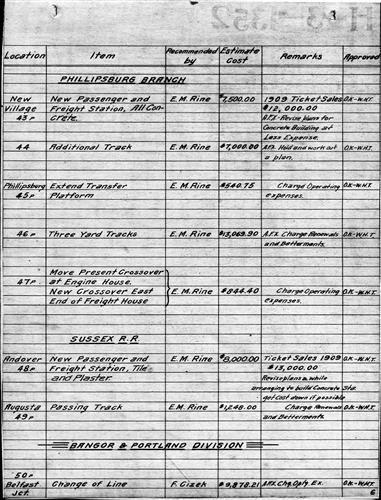 3
Location Item Recommended by Estimate Cost Remarks Approved
PHILLIPSBURG BRANCH
New New Passenger and E.M. Rine $7,500.00 1909 Ticket Sales O.K.-W.H.T.
Village Freight Station, All Con- $12,000.00
43 P crete. A.F.X-Revise plans for
Concrete Building at
Less Expense.
44 Additional Track E.M. Rine $7,000.00 A.F.X. Hold and work out O.K.-W.H.T.
a plan.
Phillipsburg Extend Transfer E.M. Rine $540.75 Charge Operating O.K.-W.H.T.
45 P Platform expenses.
46 P Three Yard Tracks E.M. Rine $13,069.90 A.F.X. Charge Renewals O.K.-W.H.T.
and Betterments.
Move Present Crossover
47 P at Engine House.
New Crossover East E.M. Rine $844.40 Charge Operating O.K.-W.H.T.
End of Freight House expenses.
SUSSEX R.R.
Andover New Passenger and E.M. Rine $8,000.00 Ticket Sales 1909 O.K.-W.H.T.
48 P Freight Station, Tile $13,000.00
and Plaster. Revise plans & while
arranging to build Concrete Sta.
get cost down if possible
Augusta Passing Track E.M. Rine $1,248.00 Charge Renewals O.K.-W.H.T.
49 P and Betterments.
BANGOR & PORTLAND DIVISION
50 P
Belfast Change of Line F. Cizek $9,878.21 A.F.X. Chg. Optg. Ex. O.K.-W.H.T.
Jct.